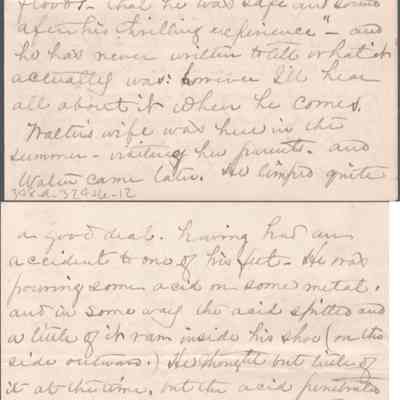 flood? - that he was safe and sound
after his thrilling experience" - and
he has never written to tell what it
actually was: however I'll hear
all about it when he comes.
Walter's wife was here in the
summer - visiting her parents. and
Walter came later. He limped quite
a good deal. having had an
accident to one of his feet. He was
pouring some acid on some metal.
and in some way the acid spitted and
a little of it ran inside his shoe (on the
side outward.) He thought but little of
it at the time, but the acid penetrated